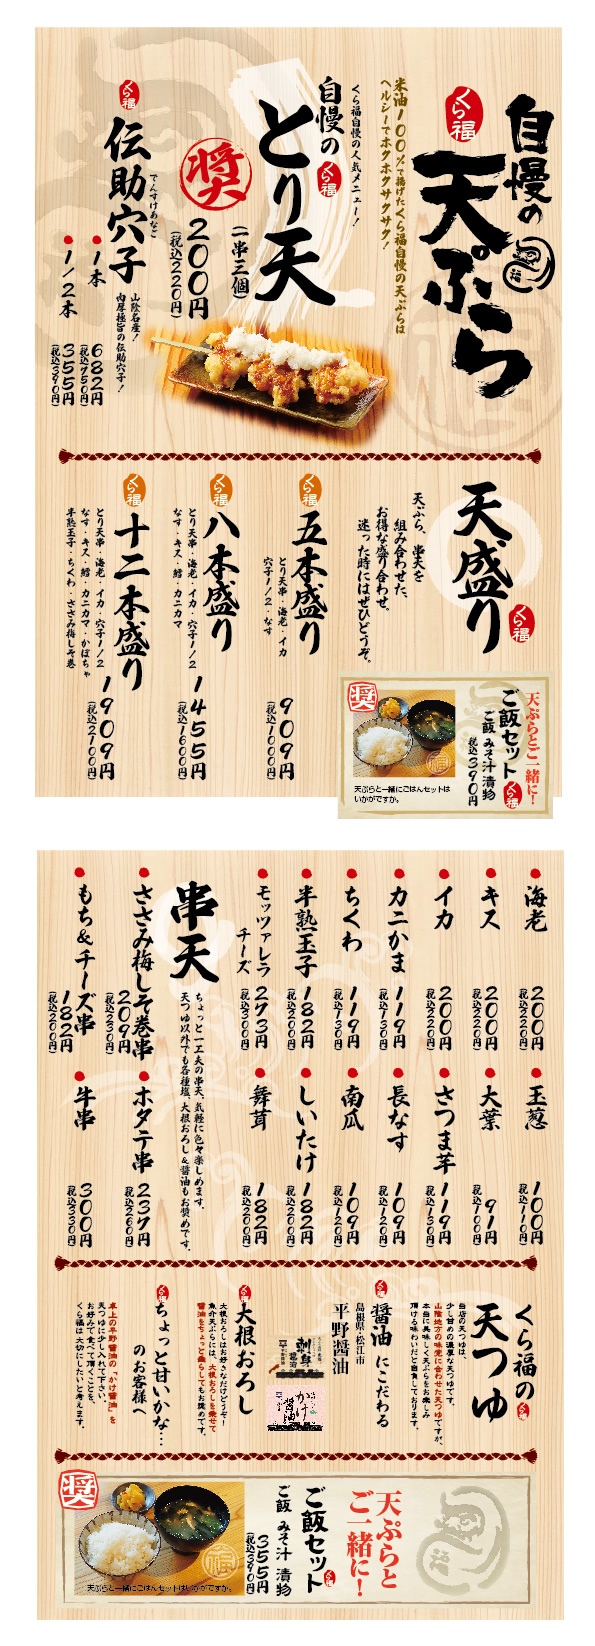 自慢の
天ぷら
くら福
米油100%で揚げたくら福自慢の天ぷらは
ヘルシーでホクホクサクサク!
くら福自慢の人気メニュー!
自慢の
くら福
とり天
(一串三個)
200円
(税込220円)
くら福
伝助穴子
でんすけあなご
山陰名産!
肉厚極旨の伝助穴子!
1本
682円
(税込750円)
1/2本
355円
(税込390円)
天盛り
くら福
天ぷら、串天を
組み合わせた、
お得な盛り合わせ。
迷った時にはぜひどうぞ。
くら福
五本盛り
とり天串・海老・イカ
穴子1/2・なす
909円
(税込1000円)
くら福
八本盛り
とり天串・海老・イカ・穴子1/2
なす・キス・鱚・カニカマ
1455円
(税込1600円)
くら福
十二本盛り
とり天串・海老・イカ・穴子1/2
なす・キス・鱚・カニカマ・かぼちゃ
半熟玉子・ちくわ・ささみ梅しそ巻
1909円
(税込2100円)
天ぷらとご一緒に!
ご飯セット
くら福
ご飯 みそ汁 漬物
税込390円
天ぷらと一緒にごはんセットは
いかがですか。
海老
200円
(税込220円)
キス
200円
(税込220円)
イカ
200円
(税込220円)
カニかま
119円
(税込130円)
ちくわ
119円
(税込130円)
半熟玉子
182円
(税込200円)
モッツァレラ
チーズ
273円
(税込300円)
玉葱
100円
(税込110円)
大葉
91円
(税込100円)
さつま芋
119円
(税込130円)
長なす
109円
(税込120円)
南瓜
109円
(税込120円)
しいたけ
182円
(税込200円)
舞茸
182円
(税込200円)
串天
ちょっと一工夫の串天、気軽に色々楽しめます。
天つゆ以外でも各種塩、大根おろし&醤油もお奨めです。
ささみ梅しそ巻串
209円
(税込230円)
もち&チーズ串
182円
(税込200円)
ホタテ串
237円
(税込260円)
牛串
300円
(税込330円)
くら福の
天つゆ
当店の天つゆは、
少し甘めの濃厚な天つゆです。
山陰地方の味覚に合わせた天つゆですが、
本当に美味しく天ぷらをお楽しみ
頂ける味わいだと自負しております。
醤油にこだわる
島根県・松江市
平野醤油
刺身
醤油
かけ
醤油
大根おろし
大根おろしはお好きなだけどうぞ!
魚介天ぷらには、大根おろしを乗せて
醤油をちょっと垂らしてもお奨めです。
ちょっと甘いかな…
のお客様へ
卓上の平野醤油の「かけ醤油」を
天つゆに少し入れて下さい。
お好みで食べて頂くことを、
くら福は大切にしたいと考えます。
天ぷらと
ご一緒に!
ご飯セット
ご飯 みそ汁 漬物
355円
(税込390円)
天ぷらと一緒にごはんセットはいかがですか。